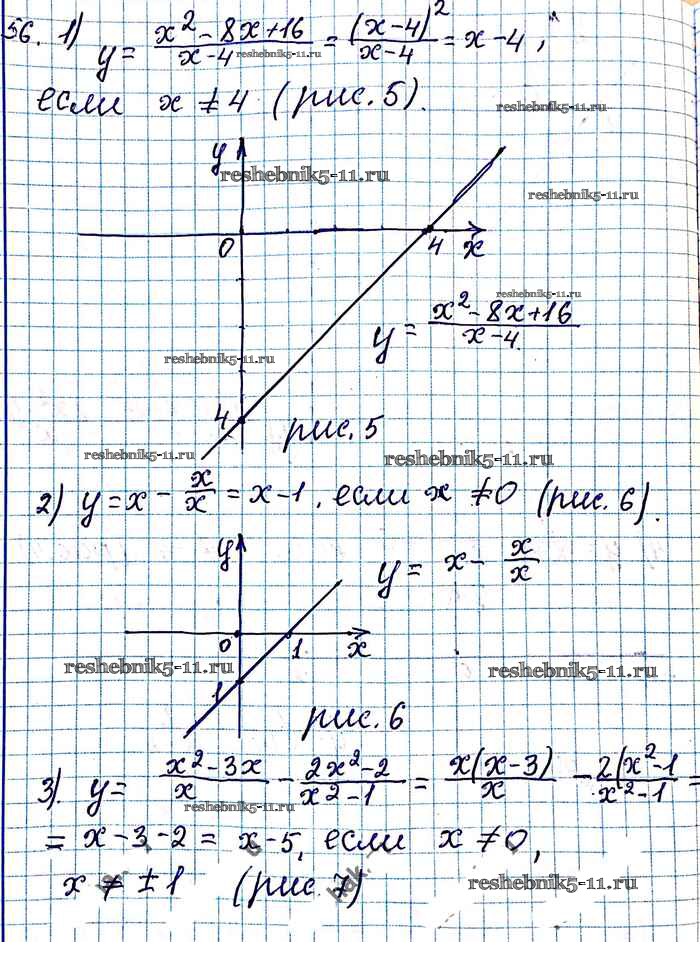 56. 1) y = (x² - 8x + 16)/(x - 4) = (x-4)²/(x-4) = x - 4,
reshebnik5-11.ru
если x ≠ 4 (рис. 5).
reshebnik5-11.ru
y
reshebnik5-11.ru
reshebnik5-11.ru
0
4
x
reshebnik5-11.ru
y = (x² - 8x + 16)/(x - 4)
reshebnik5-11.ru
4
рис. 5
reshebnik5-11.ru
reshebnik5-11.ru
2) y = x - x/x = x - 1, если x ≠ 0 (рис. 6).
y
y = x - x/x
0
1
x
reshebnik5-11.ru
reshebnik5-11.ru
1
рис. 6
3). y = (x² - 3x)/x - (2x² - 2)/(x² - 1) = x(x - 3)/x - 2(x² - 1/(x² - 1 =
reshebnik5-11.ru
= x - 3 - 2 = x - 5, если x ≠ 0,
x ≠ ± 1 (рис. 7)
reshebnik5-11.ru